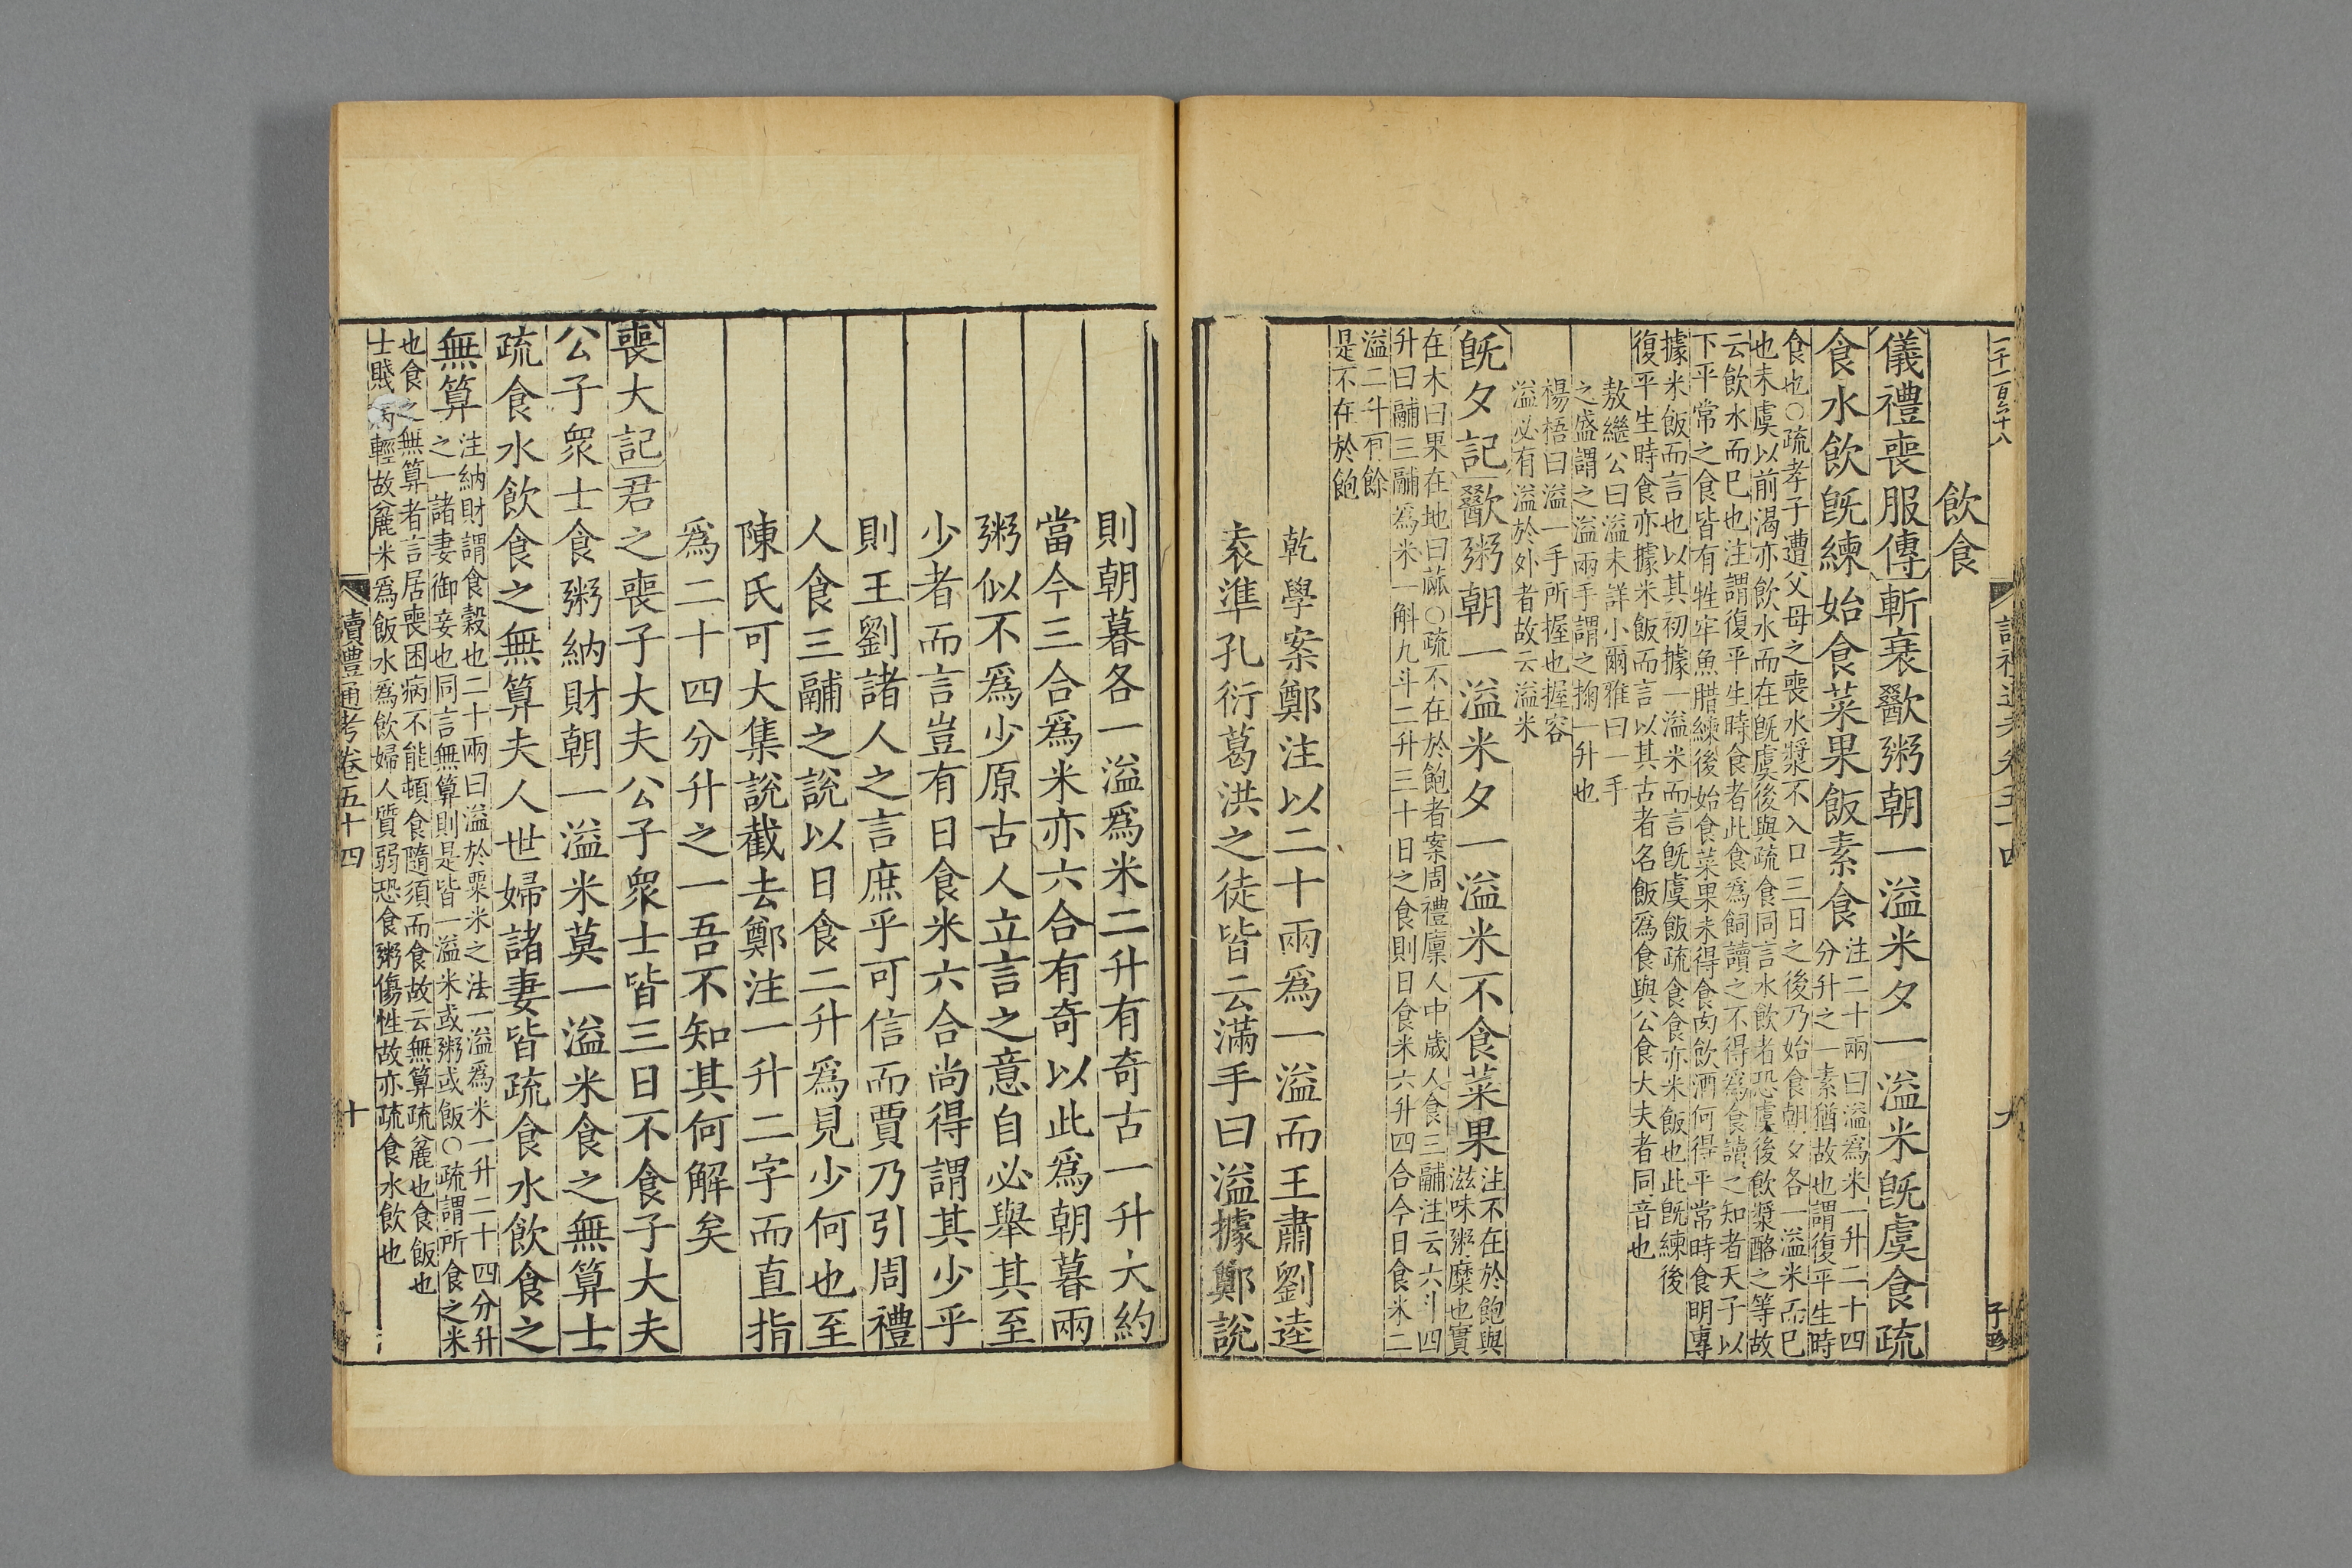 一千一百六十八
讀禮通考卷五十四
九
子珍
飲食
儀禮喪服傳斬衰歠粥朝一溢米夕一溢米旣虞食疏
食水飲旣練始食菜果飯素食
注二十兩曰溢爲米一升二十四
分升之一素猶故也謂復平生時
食也○疏孝子遭父母之喪水漿不入口三日之後乃始食朝夕各一溢米而已
也未虞以前渴亦飲水而在旣虞後與疏食同言水飲者恐虞後飲漿酪之等故
云飲水而已也注謂復平生時食者此食爲飼讀之不得爲食讀之知者天子以
下平常之食皆有牲牢魚腊練後始食菜果未得食肉飲酒何得平常時食明專
據米飯而言也以其初據一溢米而言旣虞飯疏食食亦米飯也此旣練後
復平生時食亦據米飯而言以其古者名飯爲食與公食大夫者同音也
敖繼公曰溢未詳小爾雅曰一手
之盛謂之溢兩手謂之掬一升也
楊梧曰溢一手所握也握容
溢必有溢於外者故云溢米
旣夕記歠粥朝一溢米夕一溢米不食菜果
注不在於飽與
滋味粥糜也實
在木曰果在地曰蓏○疏不在於飽者案周禮廩人中歲人食三鬴注云六斗四
升曰鬴三鬴爲米一斛九斗二升三十日之食則日食米六升四合今日食米二
溢二升有餘
是不在於飽
乾學案鄭注以二十兩爲一溢而王肅劉逵
袁準孔衍葛洪之徒皆云滿手曰溢據鄭說
則朝暮各一溢爲米二升有奇古一升大約
當今三合爲米亦六合有奇以此爲朝暮兩
粥似不爲少原古人立言之意自必舉其至
少者而言豈有日食米六合尚得謂其少乎
則王劉諸人之言庶乎可信而賈乃引周禮
人食三鬴之說以日食二升爲見少何也至
陳氏可大集說截去鄭注一升二字而直指
爲二十四分升之一吾不知其何解矣
喪大記君之喪子大夫公子衆士皆三日不食子大夫
公子衆士食粥納財朝一溢米莫一溢米食之無算士
疏食水飲食之無算夫人世婦諸妻皆疏食水飲食之
無算
注納財謂食穀也二十兩曰溢於粟米之法一溢爲米一升二十四分升
之一諸妻御妾也同言無算則是皆一溢米或粥或飯○疏謂所食之米
也食之無算者言居喪困病不能頓食隨須而食故云無算疏麄也食飯也
士賤病輕故麄米爲飯水爲飲婦人質弱恐食粥傷性故亦疏食水飲也
讀禮通考卷五十四
十